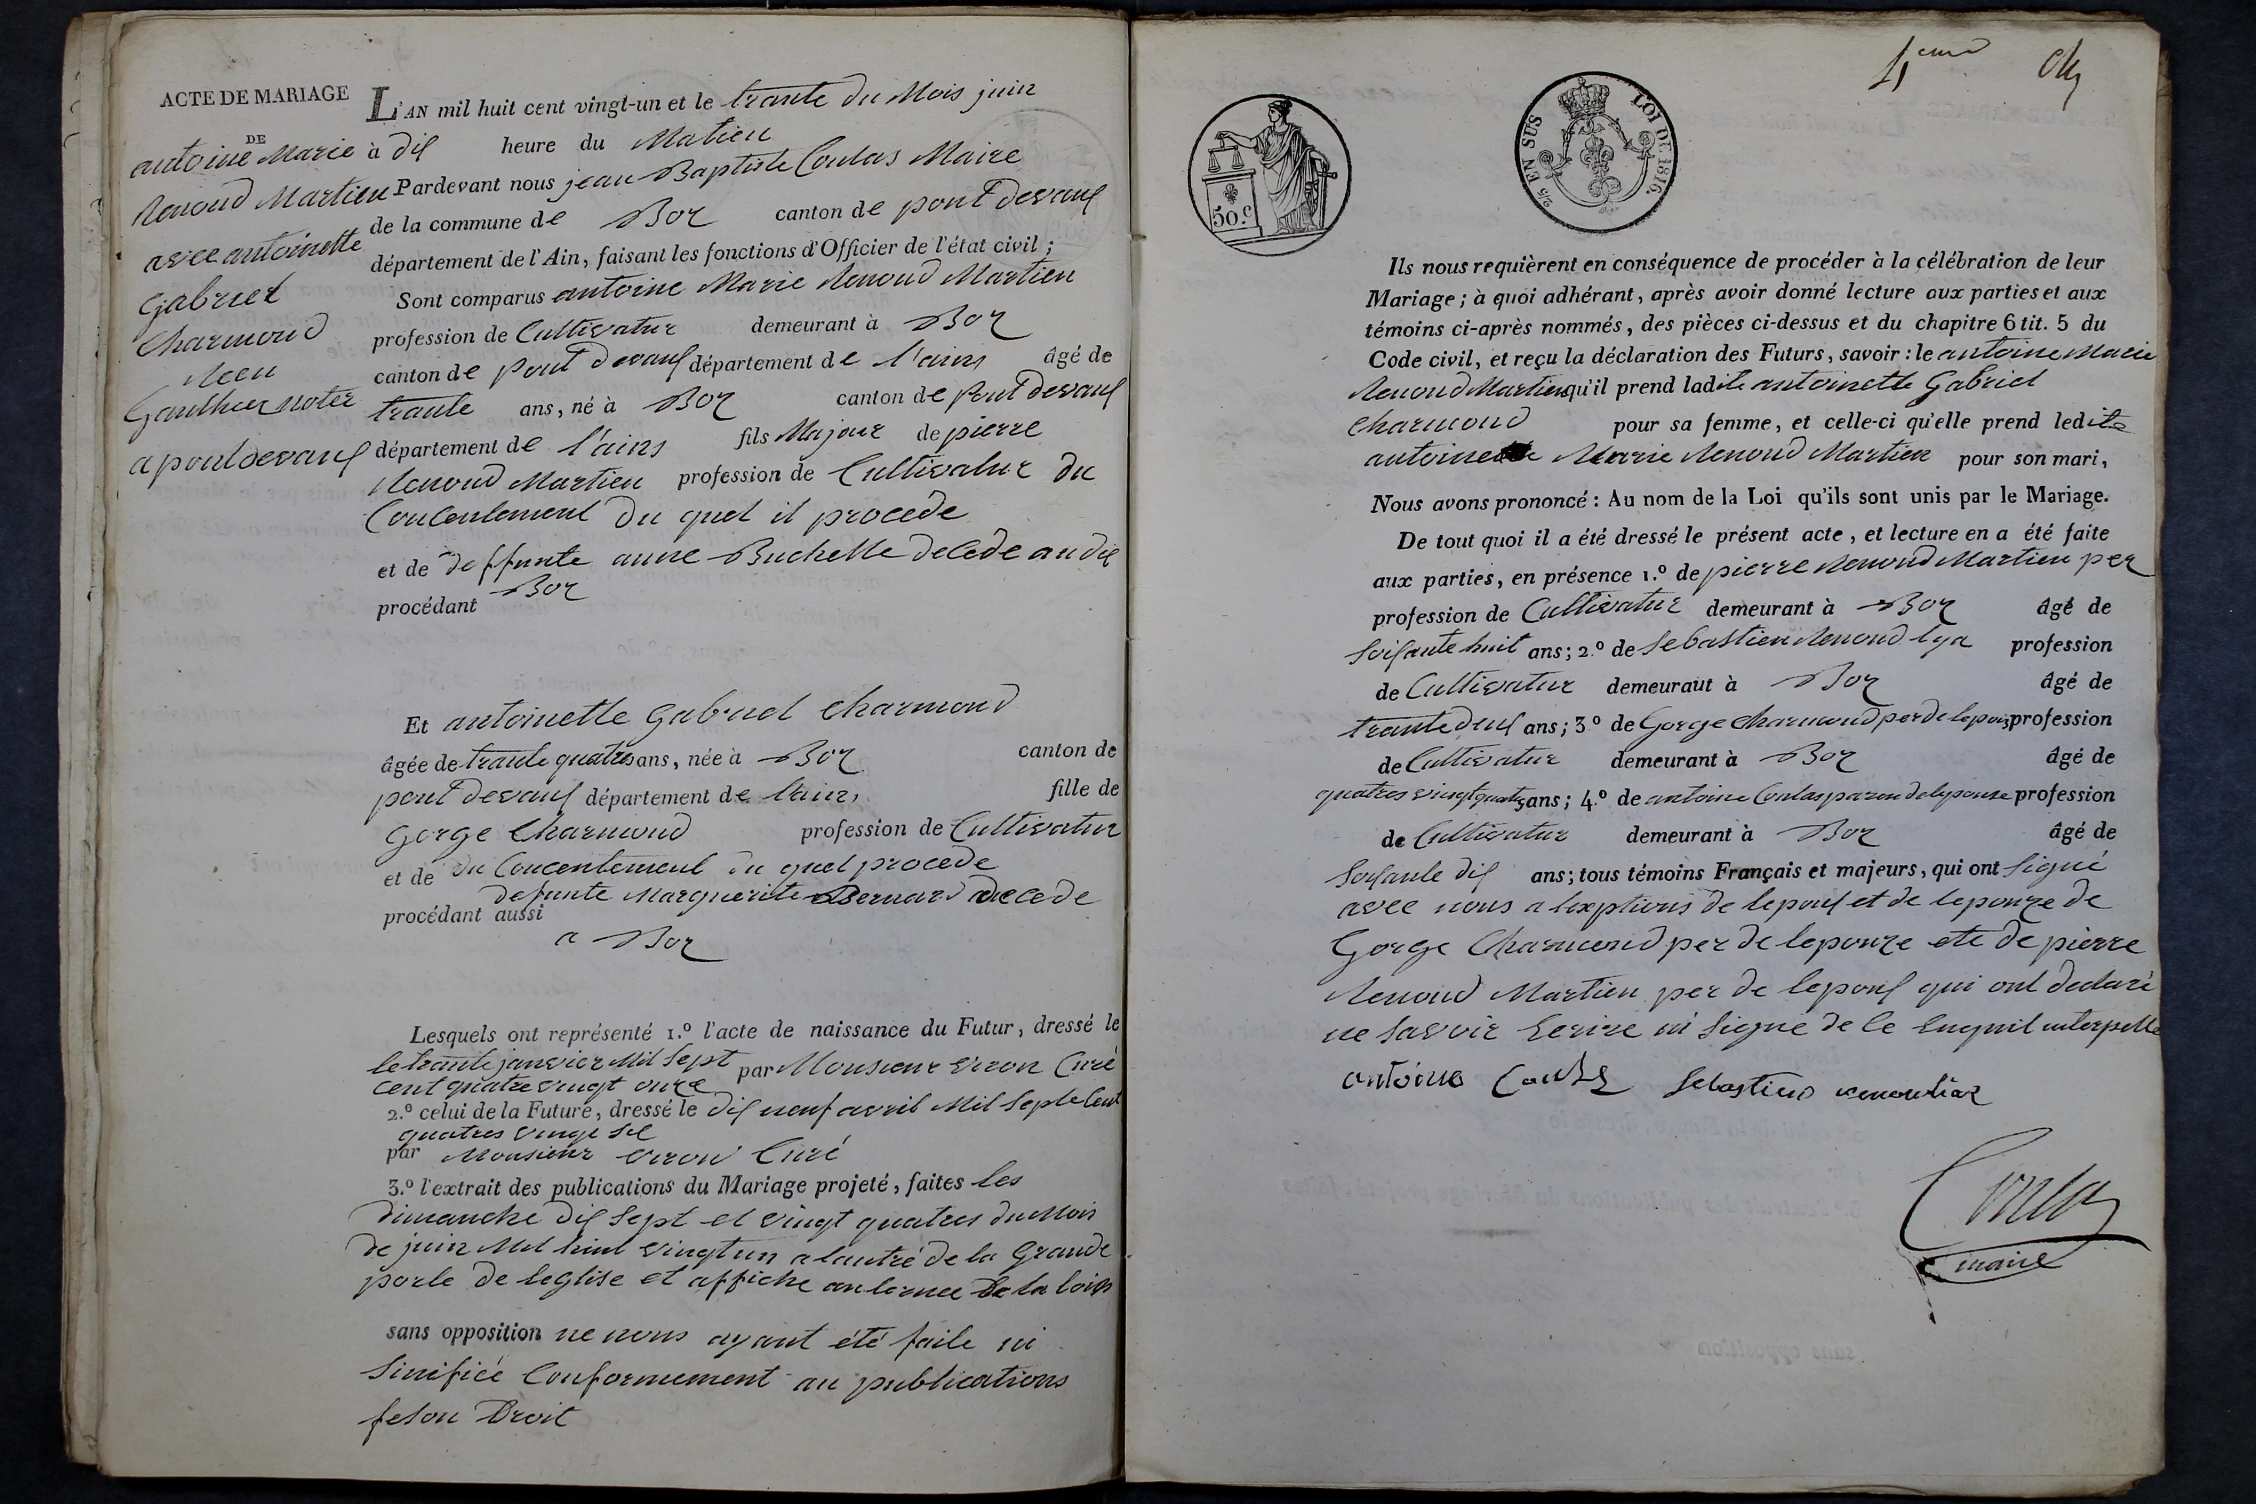 ACTE DE MARIAGE
DE
antoine Marie
Renoud Martien
avec antoinette
Gabriel
Charmond
Reçu
Gauthier noter
a pontdevauf
L'AN mil huit cent vingt-un et le trante du Mois juin
à dif heure du Matien
Pardevant nous jean Baptiste Coulas Maire
de la commune de Boz canton de pont devauf
département de l'Ain, faisant les fonctions d'Officier de l'état civil;
Sont comparus antoine Marie Renoud Martien
profession de Cultivatur demeurant à Boz
canton de pont devauf département de l'ains âgé de
trante ans, né à Boz canton de pont devauf
département de l'ains fils Majour de pierre
Renoud Martien profession de Cultivatur du
Concentement du quel il procede
et de deffunte anne Buchelle decede au dis
Boz
procédant
Et antoinette Gabriel Charmond
âgée de trante quatres ans, née à Boz canton de
pont devauf département de l'ains fille de
Gorge Charmond profession de Cultivatur
et de du Concentement du quel procede
defunte Marguerite Bernard decede
procédant aussi
a Boz
Lesquels ont représenté 1.º l'acte de naissance du Futur, dressé le
le trante janvier Mil Sept par Monsieur Curé
cent quatre vingt onze
2.º celui de la Future, dressé le dif neuf avril Mil Septe Cent
quatres vingt
par Monsieur Curé
3.º l'extrait des publications du Mariage projeté, faites les
dimanche dif Sept et vingt quatres du Mois
de juin Mil huit vingt un a lantré de la Grande
porte de leglise et affiche de la loix
sans opposition ne nous ayant été faite ni
Sinifiée Conformement au publications
Droit
4eme
50 C
2/5 EN SUS LOI DE 1816.
Ils nous requièrent en conséquence de procéder à la célébration de leur
Mariage; à quoi adhérant, après avoir donné lecture aux parties et aux
témoins ci-après nommés, des pièces ci-dessus et du chapitre 6 tit. 5 du
Code civil, et reçu la déclaration des Futurs, savoir: le antoine Marie
Renoud Martien qu'il prend ladite antoinette Gabriel
Charmond pour sa femme, et celle-ci qu'elle prend ledite
antoine Marie Renoud Martien pour son mari,
Nous avons prononcé: Au nom de la Loi qu'ils sont unis par le Mariage.
De tout quoi il a été dressé le présent acte, et lecture en a été faite
aux parties, en présence 1.º de pierre Renoud Martien per
profession de Cultivatur demeurant à Boz âgé de
Soisante huit ans; 2.º de Sebastien Renoud profession
de Cultivatur demeurant à Boz âgé de
trante ans; 3º de Gorge Charmond per de lepouz profession
de Cultivatur demeurant à Boz âgé de
quatres vingt quatres ans; 4.º de antoine Coulas de lepouse profession
de Cultivatur demeurant à Boz âgé de
Soisante dif ans; tous témoins Français et majeurs, qui ont Signé
avec nous a lexptions de lepouf et de lepouze de
Gorge Charmond per de lepouze ete de pierre
Renoud Martien per de lepouf qui ont declaré
ne Savoir Ecrire ni Signe de ce Enquit interpelle
antoine Coulas Sebastiens
Coulas
maire